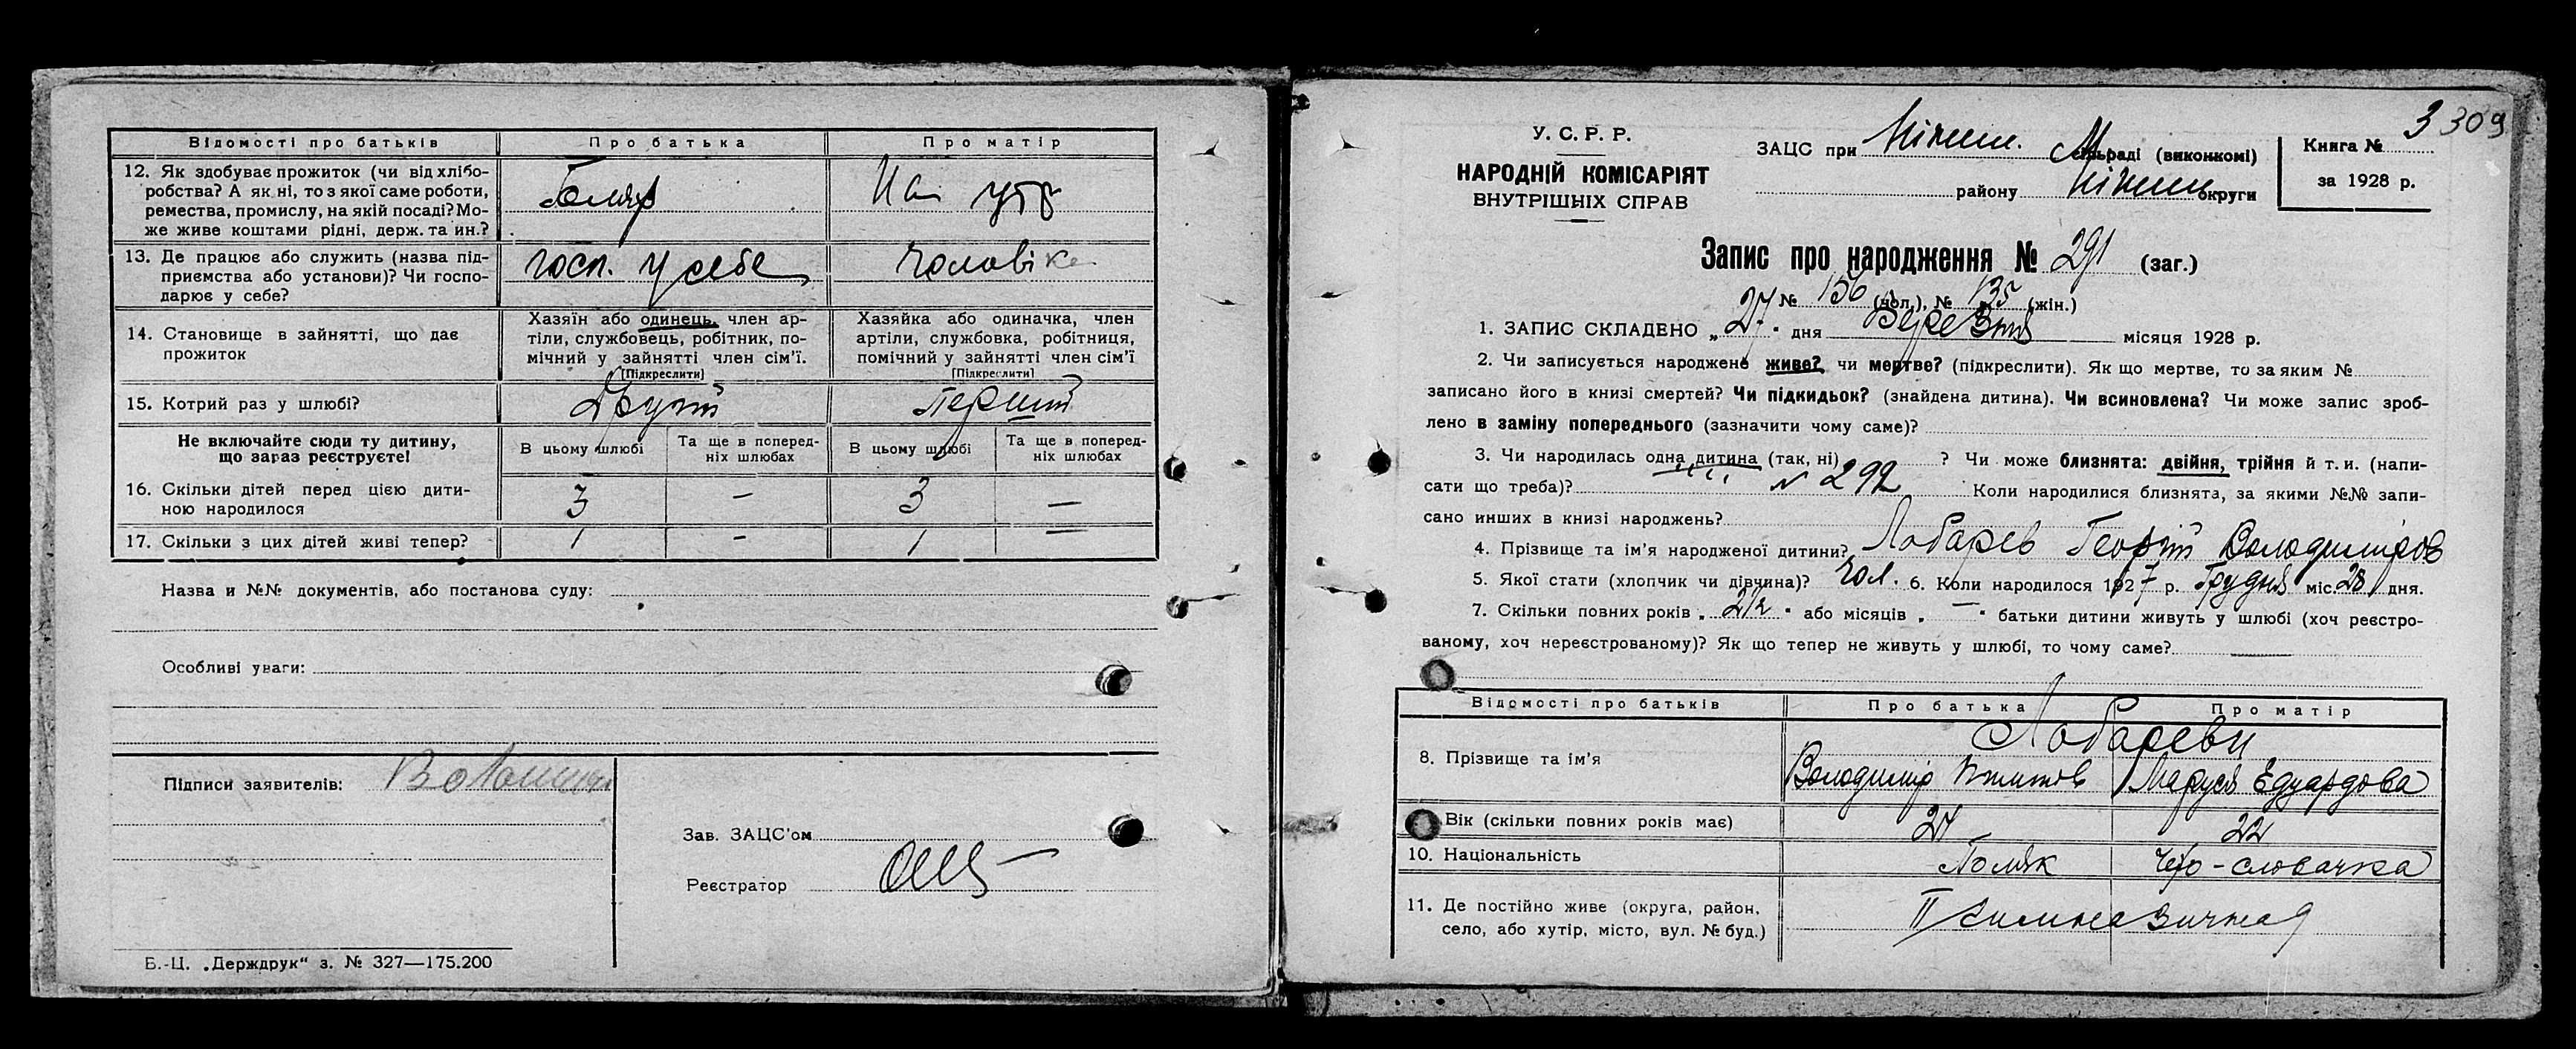 Відомості про батьків Про батька Про матір
12. Як здобуває прожиток (чи від хлібо-
робства? А як ні, то з якої саме роботи,
ремества, промислу, на якій посаді? Мо-
же живе коштами рідні, держ. та ин.?
На утр
13. Де працює або служить (назва під-
приємства або установи)? Чи госпо-
дарює у себе?
госп. у себе чоловіка
14. Становище в зайнятті, що дає
прожиток
Хазяїн або одинець, член ар-
тіли, службовець, робітник, по-
мічний у зайнятті член сім'ї.
[Підкреслити]
Хазяйка або одиначка, член
артіли, службовка, робітниця,
помічний у зайнятті член сім'ї
[Підкреслити]
15. Котрий раз у шлюбі? Другий Перший
Не включайте сюди ту дитину,
що зараз реєструєте!
В цьому шлюбі Та ще в поперед-
ніх шлюбах В цьому шлюбі Та ще в поперед-
ніх шлюбах
16. Скільки дітей перед цією дити-
ною народилося 3 — 3 —
17. Скільки з цих дітей живі тепер? 1 - 1 —
Назва и №№ документів, або постанова суду:
Особливі уваги:
Підписи заявителів:
Зав. ЗАЦС'ом
Реєстратор
Б.-Ц. „Держдрук" з. № 327—175.200
3 309
У. С. Р. Р.
НАРОДНІЙ КОМІСАРІЯТ
ВНУТРІШНІХ СПРАВ
ЗАЦС при Ніжин. М сільраді (виконкомі)
району Ніжин округи
Книга №
за 1928 р.
Запис про народження № 291 (заг.)
№ 156 (чол.), № 135 (жін.)
1. ЗАПИС СКЛАДЕНО „27" дня Березня місяця 1928 р.
2. Чи записується народжене живе? чи мертве? (підкреслити). Як що мертве, то за яким №
записано його в книзі смертей? Чи підкидьок? (знайдена дитина). Чи всиновлена? Чи може запис зроб-
лено в заміну попереднього (зазначити чому саме)?
3. Чи народилась одна дитина (так, ні) ? Чи може близнята: двійня, трійня й т. и. (напи-
сати що треба)? № 292 Коли народилися близнята, за якими №№ запи-
сано инших в книзі народжень?
4. Прізвище та ім'я народженої дитини? Лобарев Георгій Володимиров
5. Якої стати (хлопчик чи дівчина)? Чол. 6. Коли народилося 1927 р. Грудня міс. 28 дня.
7. Скільки повних років „ 2½ " або місяців „ — " батьки дитини живуть у шлюбі (хоч реєстро-
ваному, хоч нереєстрованому)? Як що тепер не живуть у шлюбі, то чому саме?
Відомості про батьків Про батька Про матір
Лобареви
8. Прізвище та ім'я
Володимир Маруся Едуардова
Вік (скільки повних років має) 27 22
10. Національність Поляк Чехо-словачка
11. Де постійно живе (округа, район,
село, або хутір, місто, вул. № буд.)